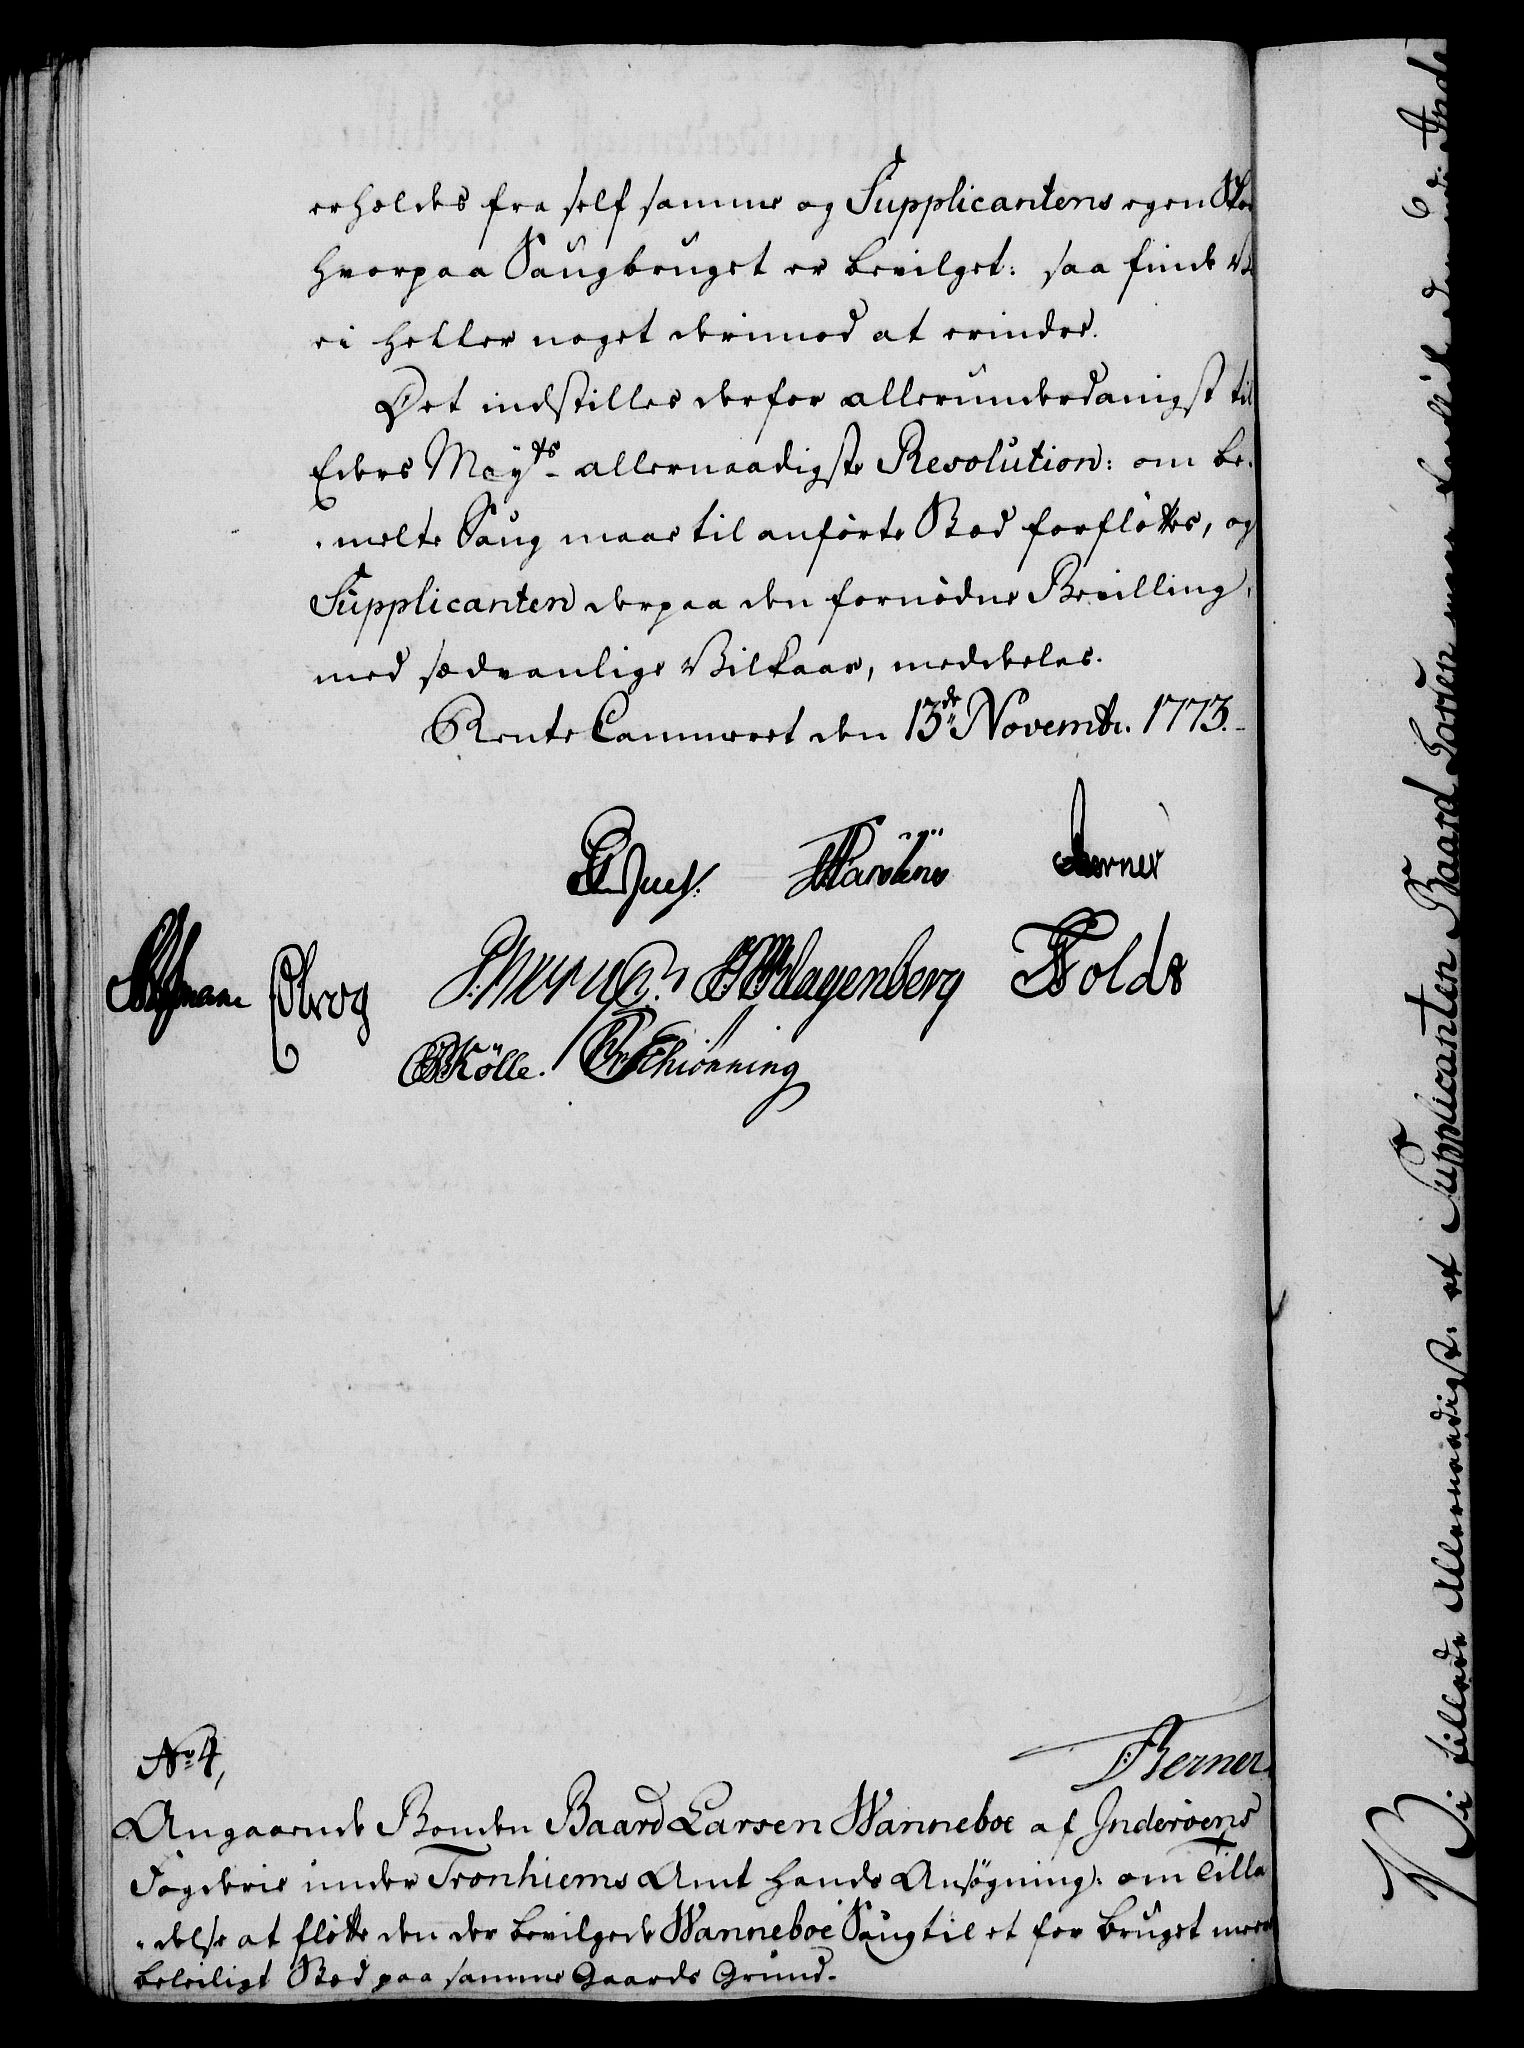 erholdes fra self samme og Supplicantens egen Skov
hvorpaa Saugbruget er bevilget: saa finde Vi
ei heller noget derimod at erindre.
Det indstilles derfor allerunderdanigst til
Eders May:ts allernaadigste Resolution: om be-
-melte Saug maae til anførte Sted forfløttes, og
Supplicanten derpaa den fornødne Bevilling,
med sædvanlige Vilkaar, meddeles.
Rente Cammeret den 13de Novembr. 1773.
Juel. Martens Berner
Selmann Obrog Klagenberg Holdt
Kølle. Schiönning
No 4,
Berner
Angaaende Bonden Baard Larsen Wanneboe af Inderøens
Fogderie under Tronhiems Amt hands Ansøgning: om Tilla
-delse at fløtte den der bevilgede Wanneboe Saug til et for bruget meere
beleiligt Sted paa samme Gaards Grund.
Vi tillade Allernaadigst: at Supplicanten Baard Larsen maae